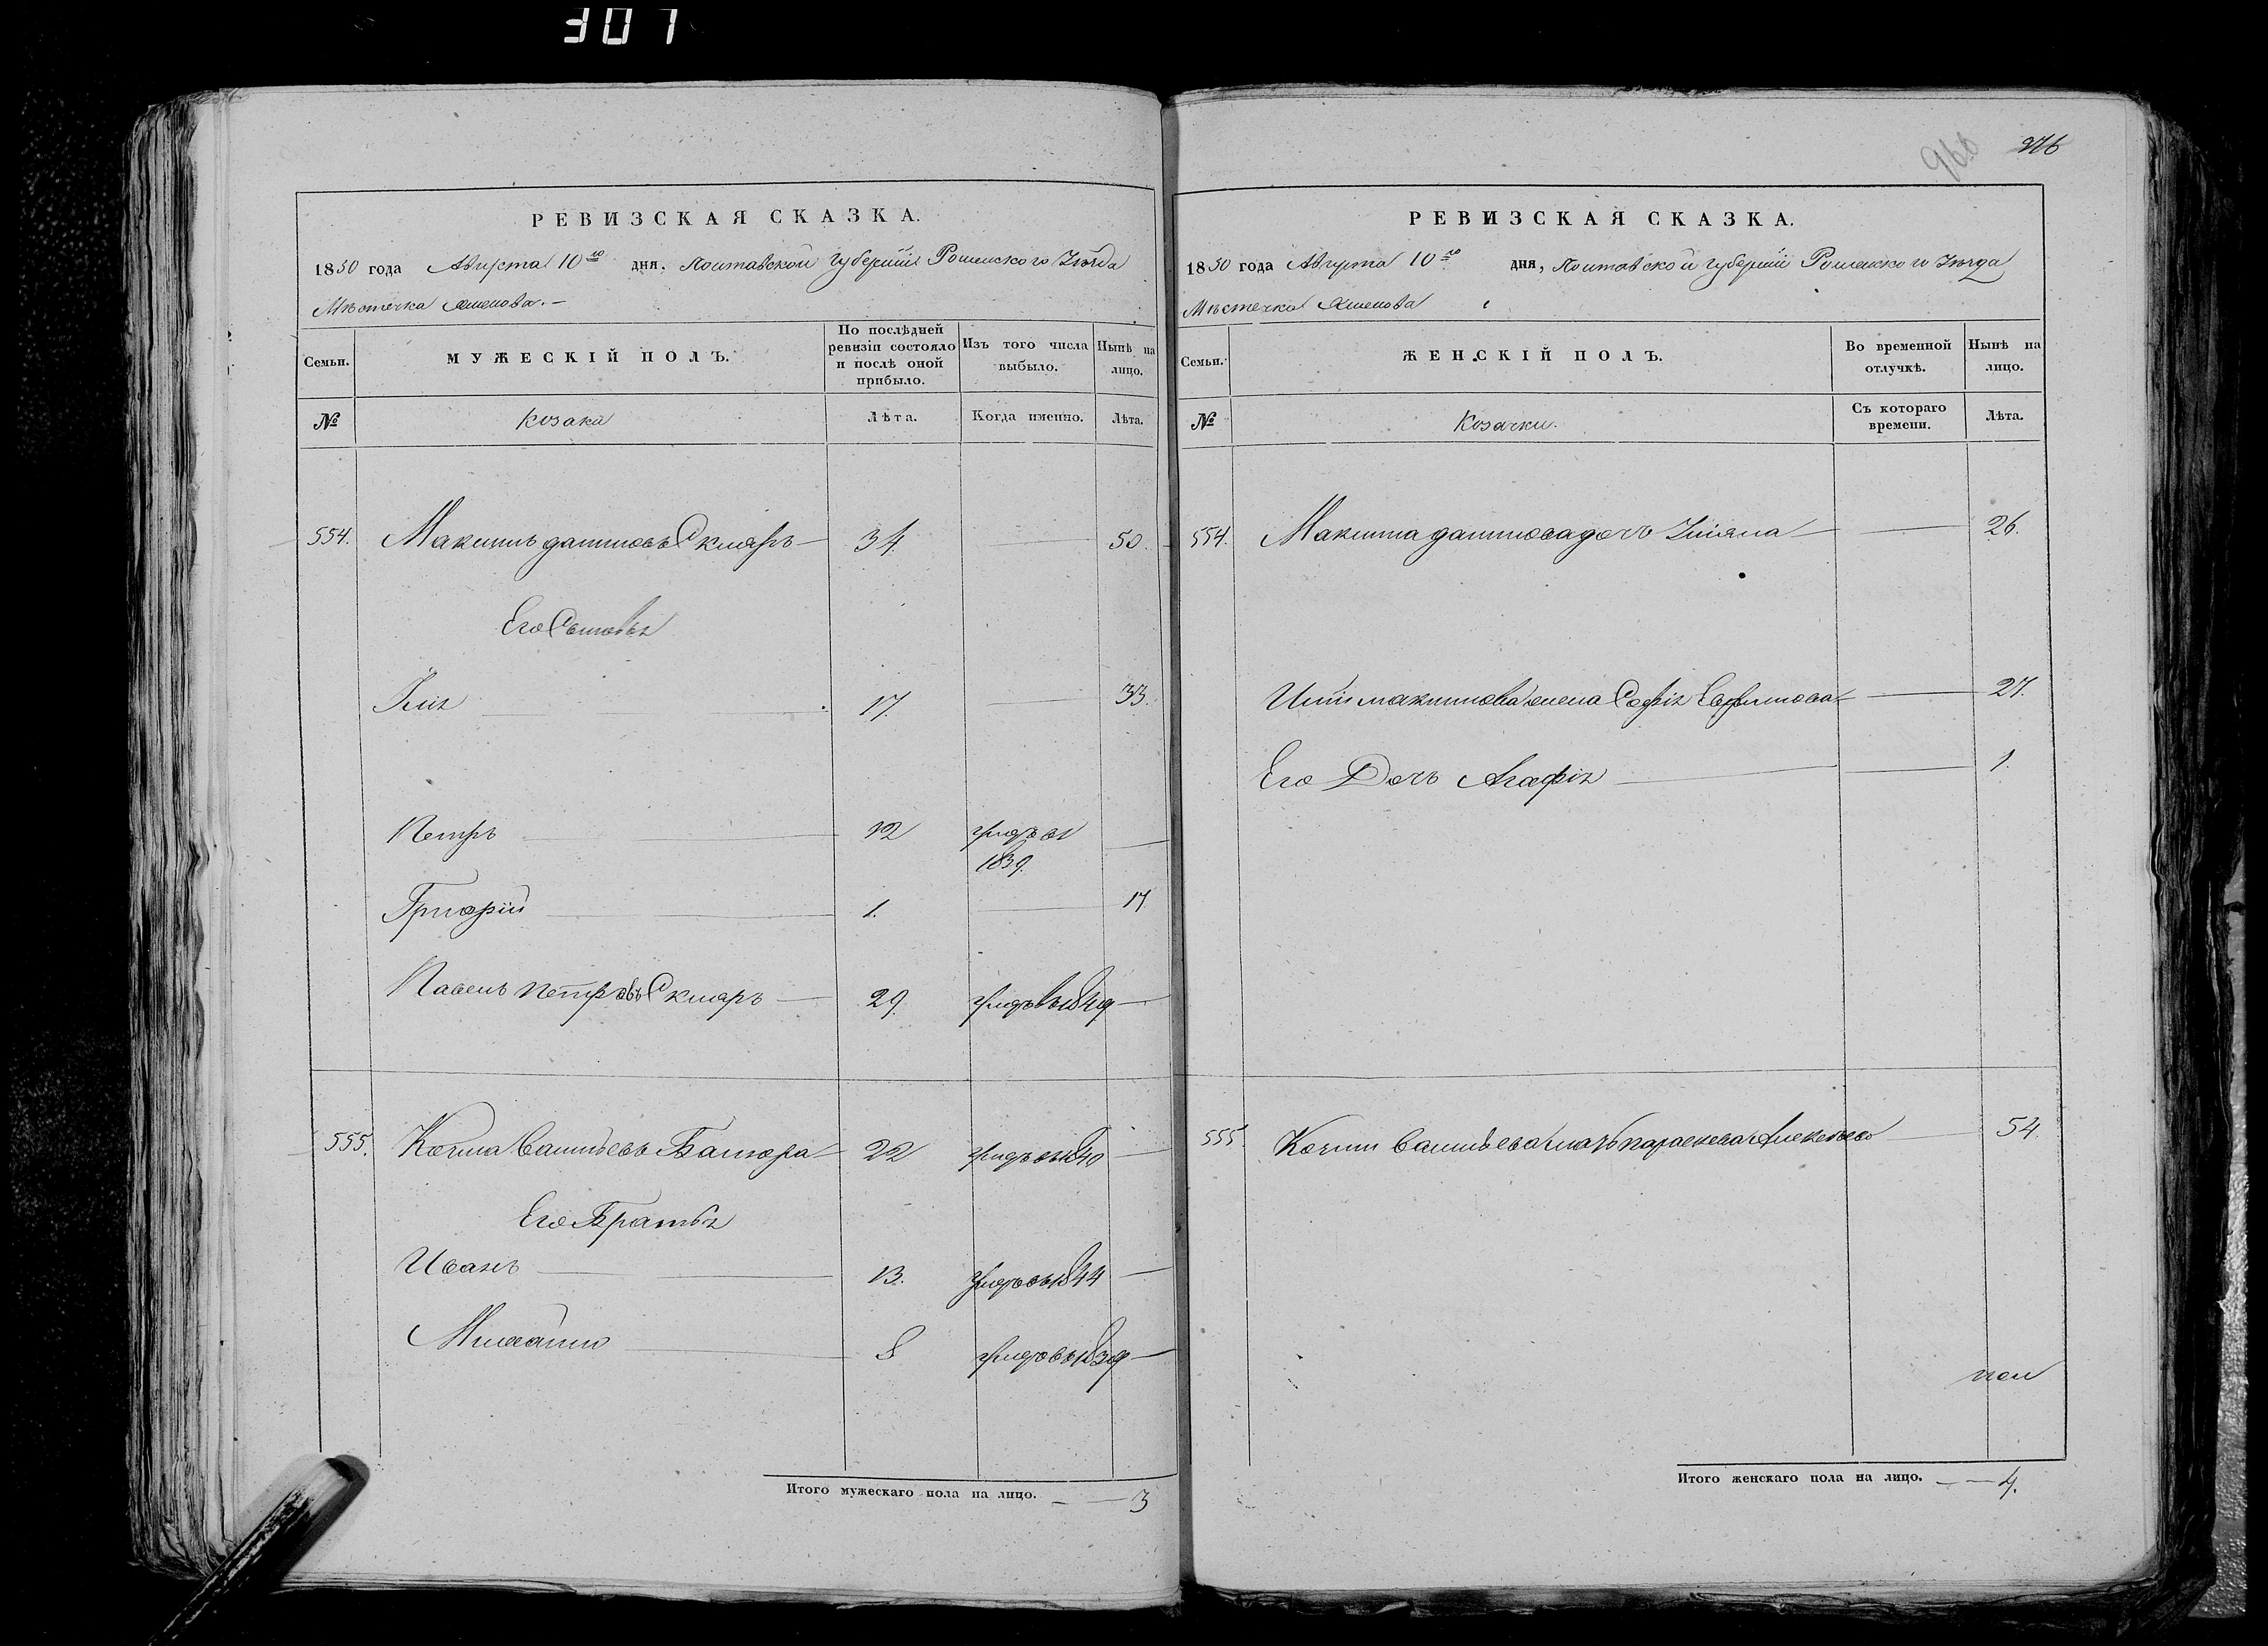 307
966 276
РЕВИЗСКАЯ СКАЗКА.
1850 года Августа 10го дня, Полтавской губерніи Роменского Уѣзда
Мѣстечка
МУЖЕСКІЙ ПОЛЪ.
Семьи.
По послѣдней ревизіи состояло и послѣ оной прибыло.
Изъ того числа выбыло.
Нынѣ на лицо.
№ Козаки Лѣта. Когда именно. Лѣта.
554. Максимъ Скляръ 34. 50.
Его Сыновья
17. 33.
Петръ 12 умеръ въ
1839.
Григорій 1. 17
Павелъ Петровъ Скляръ 29. умеръ въ 1849
555. Васильевъ 22 умеръ въ 1840
Его Братья
Иванъ 13. умеръ въ 1844
Михайло 8 умеръ въ 1839
Итого мужескаго пола на лицо. 3
РЕВИЗСКАЯ СКАЗКА.
1850 года Августа 10го дня, Полтавской губерніи Роменского Уѣзда
Мѣстечка
ЖЕНСКІЙ ПОЛЪ.
Семьи.
Во временной отлучкѣ.
Нынѣ на лицо.
№ Козачки. Съ котораго времени. Лѣта.
554. Максима дочъ 26.
максимова жена Софія 27.
Его Дочъ Агафія 1.
555. Васильева мать 54.
Итого женскаго пола на лицо. 4.